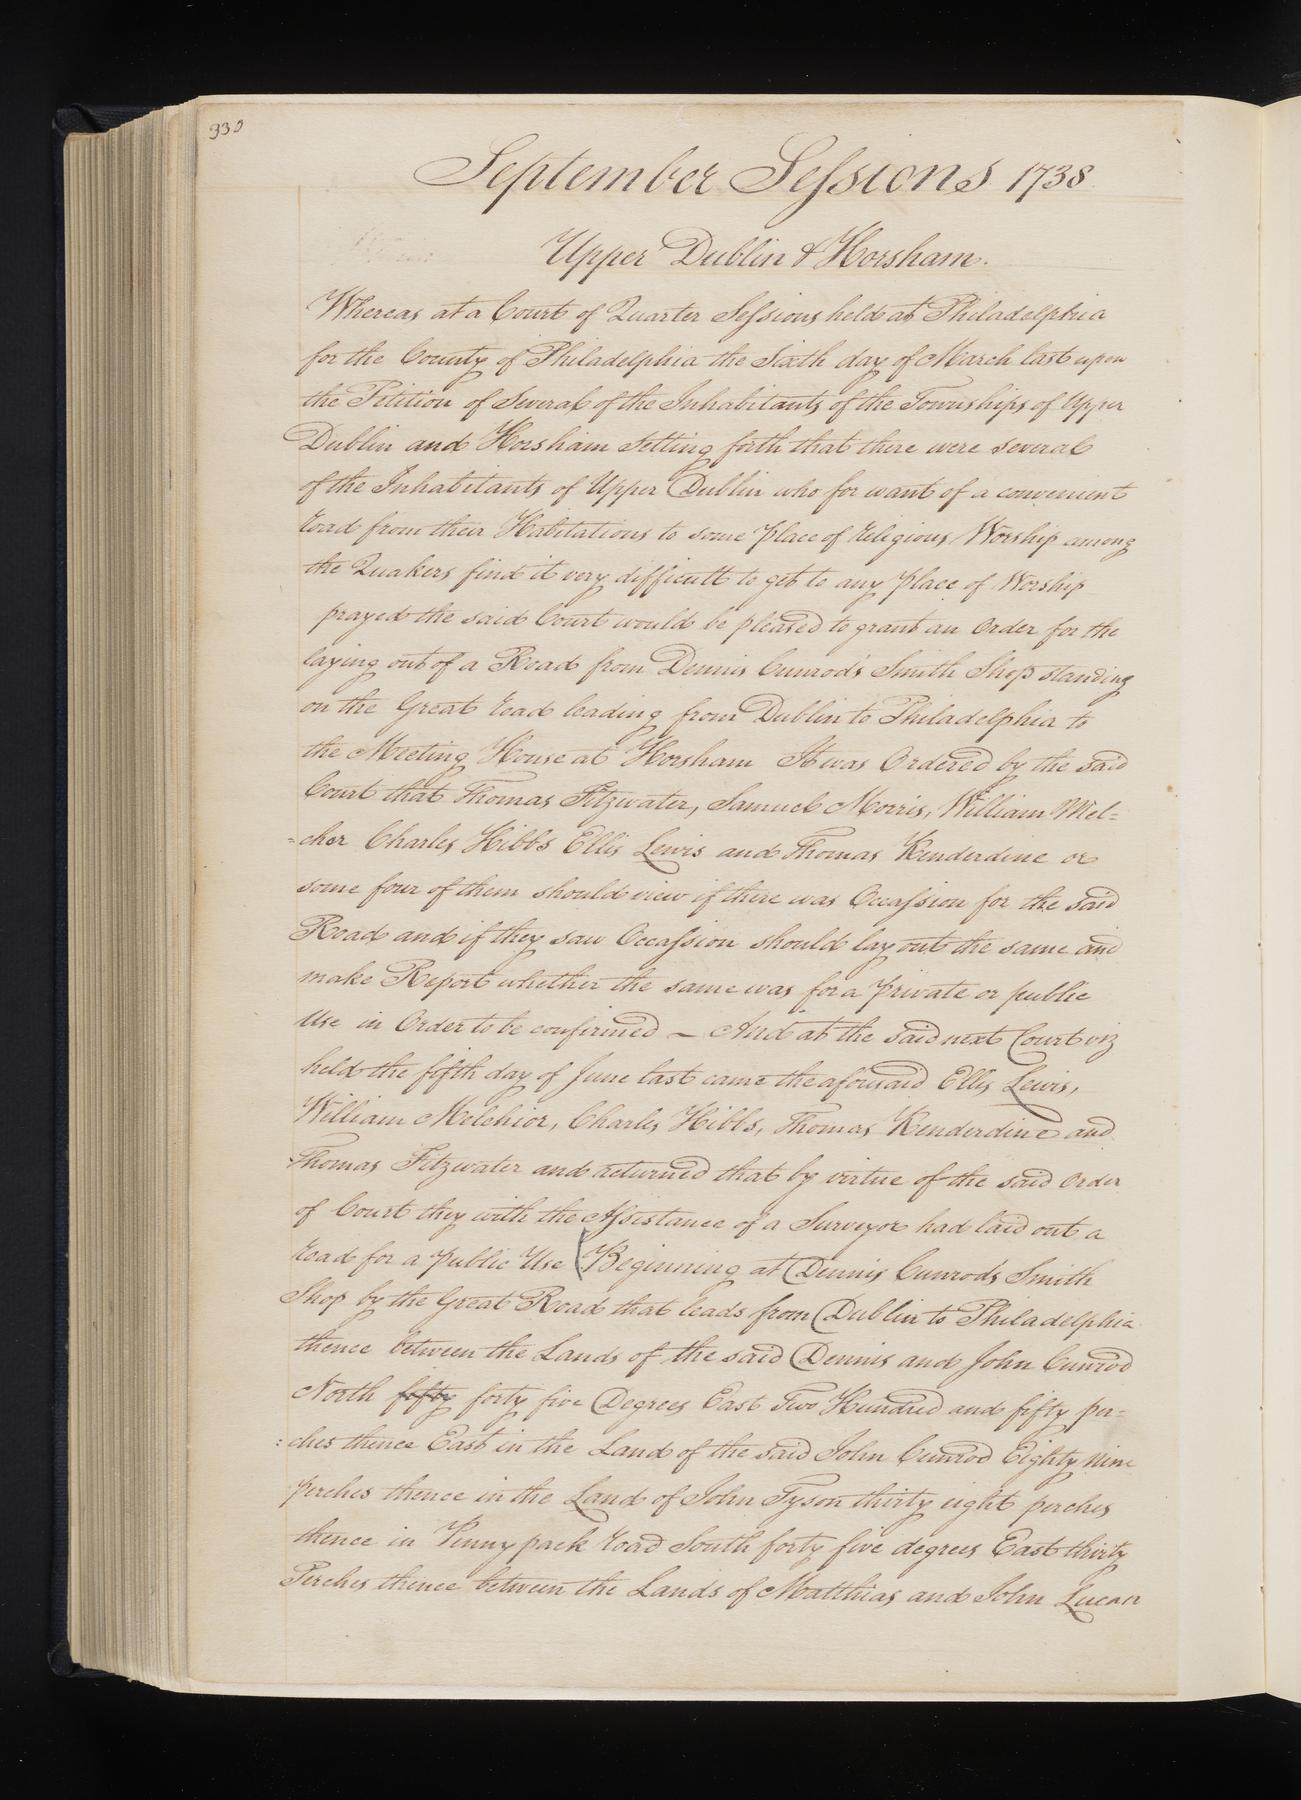 330
September Sessions 1738
Upper Dublin & Horsham.
Whereas at a Court of Quarter Sessions held at Philadelphia
for the County of Philadelphia the Sixth day of March last upon
the Petition of Several of the Inhabitants of the Townships of Upper
Dublin and Horsham Setting forth that there were several
of the Inhabitants of Upper Dublin who for want of a convenient
road from their Habitations to some place of religious Worship among
the Quakers find it very difficult to get to any place of Worship
prayed the said Court would be pleased to grant an Order for the
laying out of a Road from Dennis Cunrod's Smith Shop standing
on the Great road leading from Dublin to Philadelphia to
the Meeting House at Horsham It was Ordered by the said
Court that Thomas Fitzwater, Samuel Morris, William Mel=
=cher Charles Hibbs Ellis Lewis and Thomas Kenderdine or
some four of them should view if there was Occassion for the said
Road and if they saw Occassion should lay out the same and
make Report whether the same was for a private or public
Use in Order to be confirmed — And at the said next Court viz
held the fifth day of June last came the aforesaid Ellis Lewis,
William Melchior, Charles Hibbs, Thomas Kinderdine and
Thomas Fitzwater and returned that by virtue of the said Order
of Court they with the Assistance of a Surveyor had laid out a
road for a public Use (Beginning at Dennis Cunrods Smith
Shop by the Great Road that leads from Dublin to Philadelphia
thence between the Lands of the said Dennis and John Cunrod
North fifty forty five Degrees East Two Hundred and fifty per=
=ches thence East in the Land of the said John Cunrod Eighty nine
perches thence in the Land of John Tyson thirty eight perches
thence in Pennypack road South forty five degrees East thirty
Perches thence between the Lands of Matthias and John Lucan